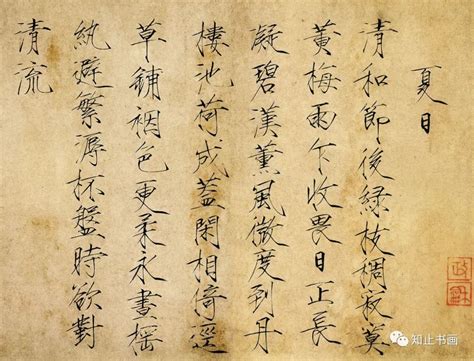 夏日
清和節後綠枝稠寂莫
黃梅雨乍收畏日正長
凝碧漢薰風微度到丹
樓池荷成蓋閑相倚逕
草鋪裀色更柔永晝搖
紈避繁溽杯盤時欲對
清流
政和
知止书画